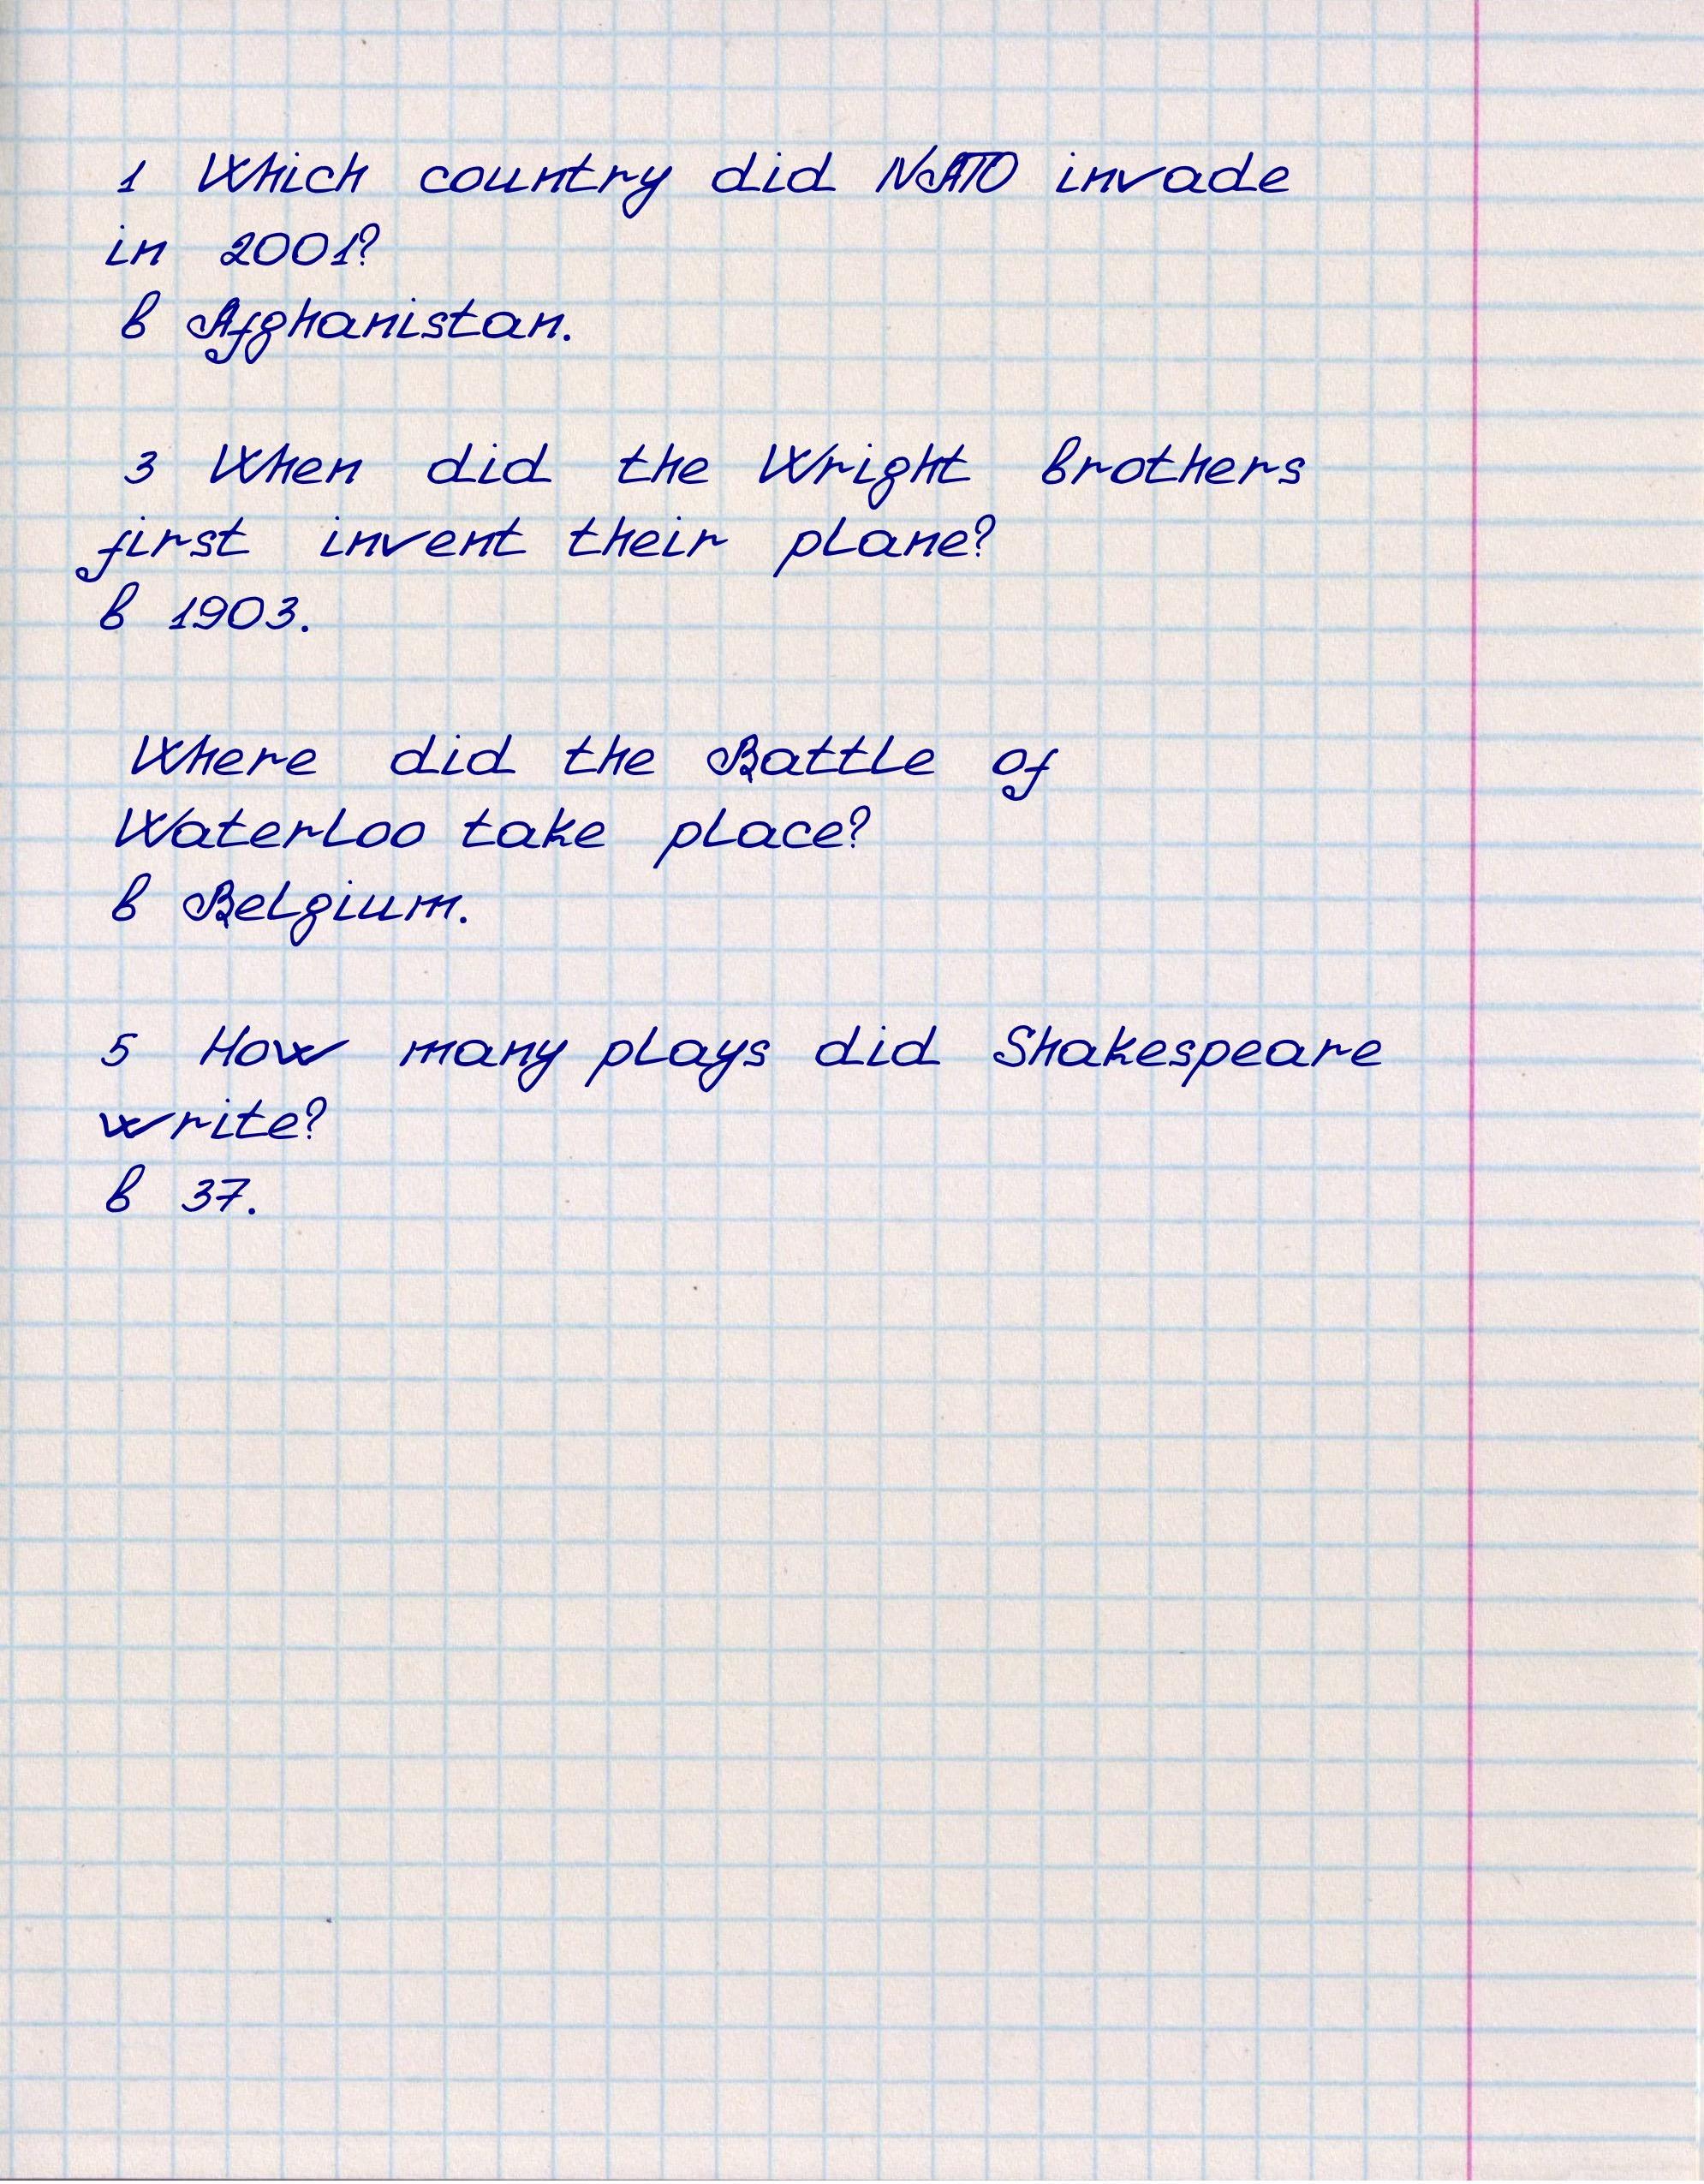 1 Which country did NATO invade
in 2001?
b Afghanistan.
3 When did the Wright brothers
first invent their plane?
b 1903.
Where did the Battle of
Waterloo take place?
b Belgium.
5 How many plays did Shakespeare
write?
b 37.